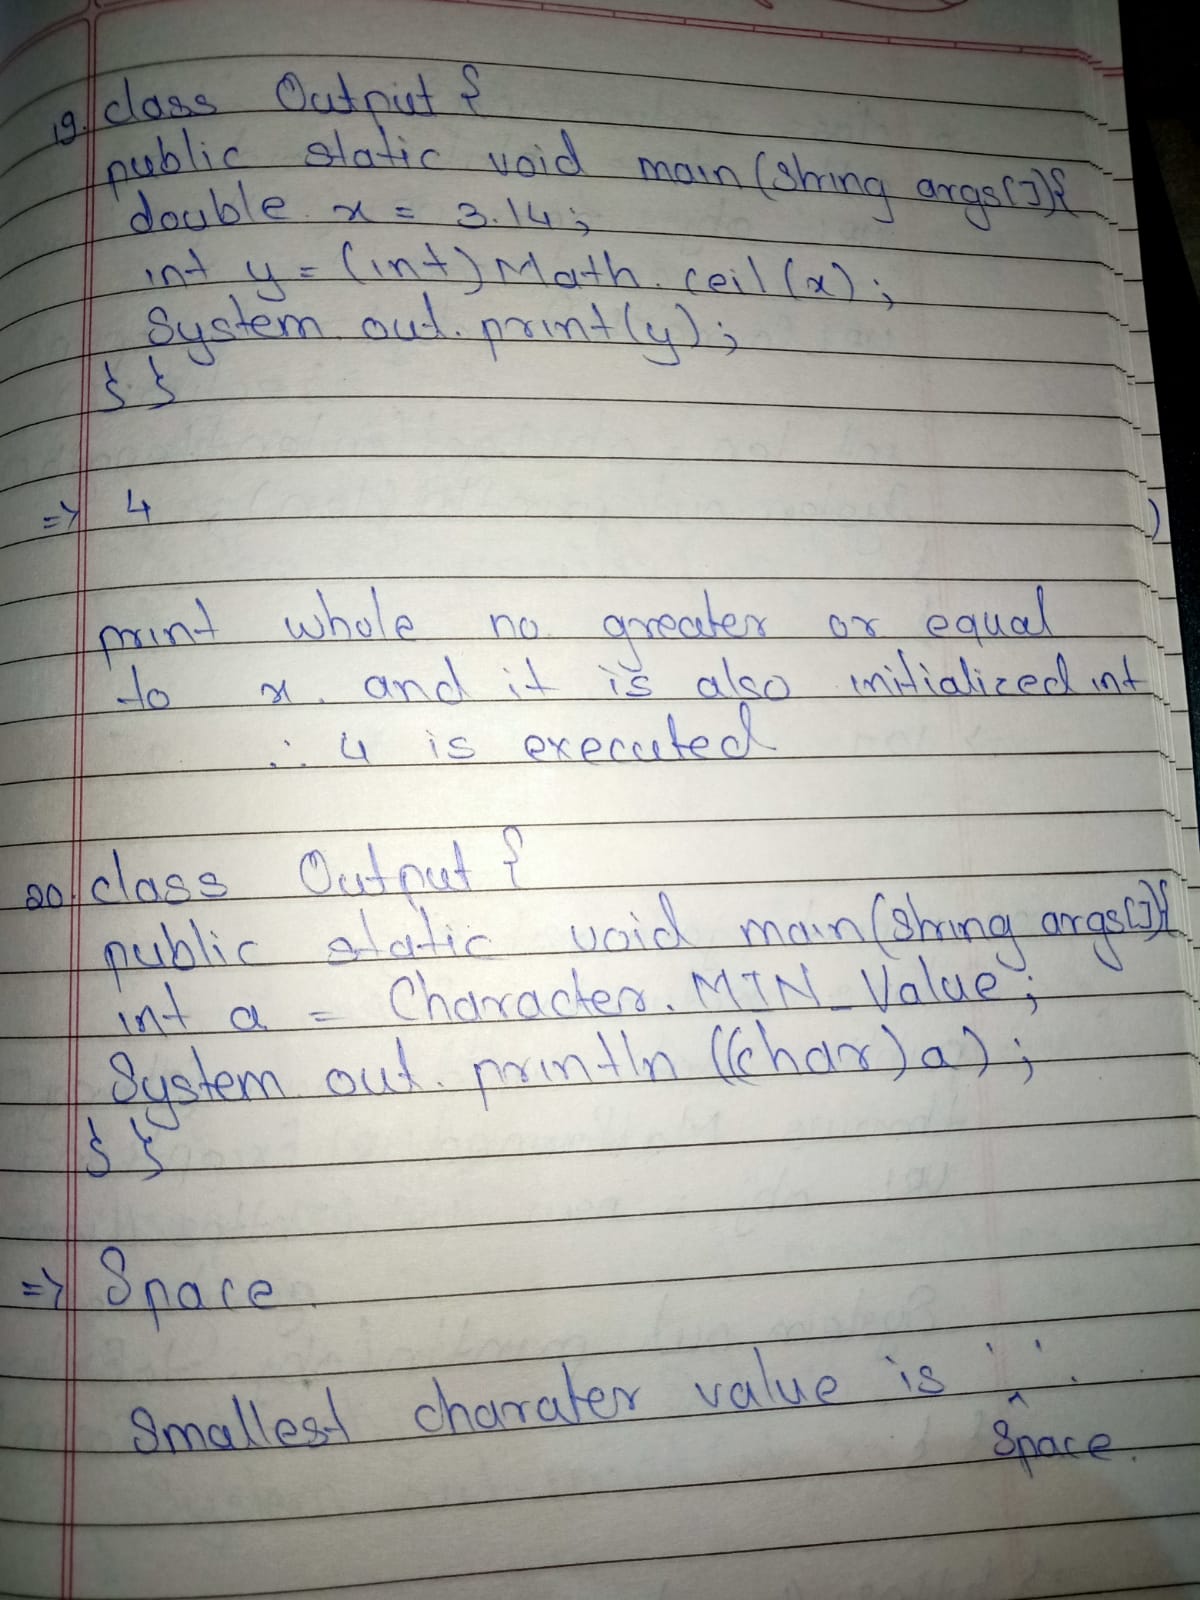 19. class Output {
public static void main(String args[]){
double x = 3.14;
int y = (int) Math.ceil(x);
System.out.print(y);
} }
=> 4
print whole no greater or equal
to x. and it is also initialized int
∴ 4 is executed
20. class Output {
public static void main(String args[]){
int a = Character.MIN_Value;
System.out.println((char)a);
} }
=> Space.
Smallest charater value is ' '.
^
Space.